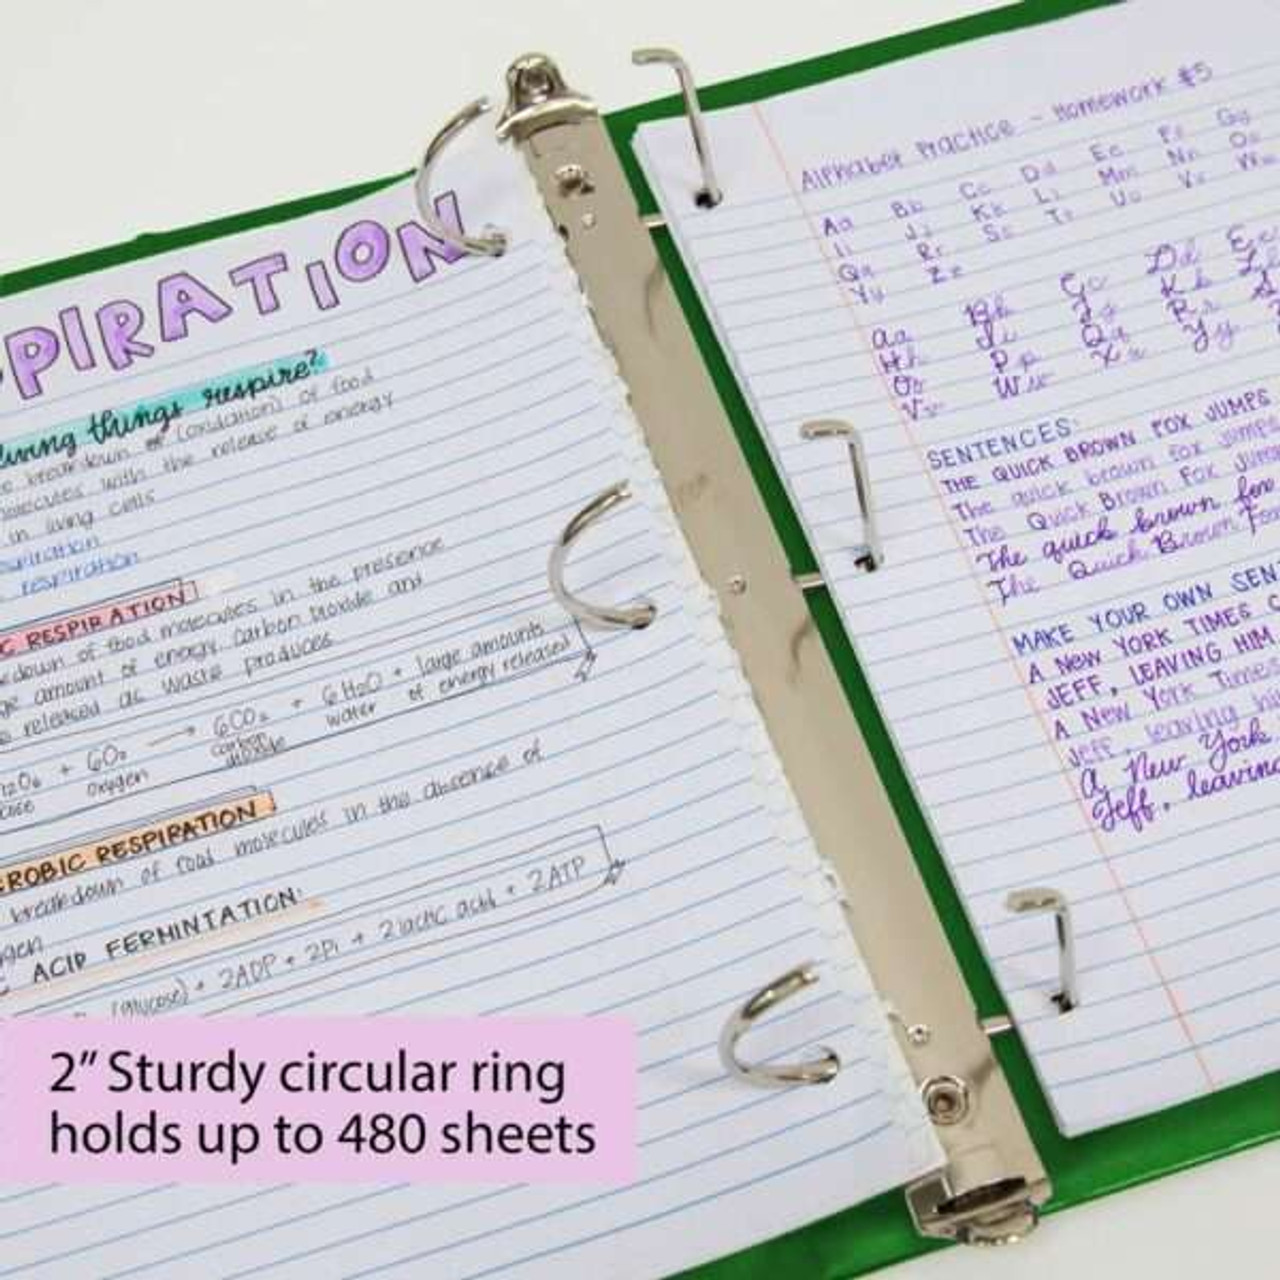 PIRATION
living things respire?
breakdown of (oxidation) of food
molecules with the release of energy
in living cells
respiration
respiration
C RESPIRATION
kdown of food molecules in the presence
ge amount of energy. Carbon Dioxide and
e released as waste products
+ 6O₂ → 6CO₂ + 6H₂O + large amounts
oxygen carbon dioxide water of energy released
EROBIC RESPIRATION
breakdown of food molecules in the absence of
ygen
C ACID FERMINTATION:
(glucose) + 2ADP + 2Pi + 2lactic acid + 2ATP
2" Sturdy circular ring
holds up to 480 sheets
Alphabet Practice - Homework #5
Aa Bb Cc Dd Ee Ff Gg
Ii Jj Kk Ll Mm Nn Oo
Qq Rr Ss Tt Uu Vv Ww
Yy Zz
Aa Bb Cc Dd Ee
Hh Ii Jj Kk Ll
Oo Pp Qq Rr
Vv Ww Xx Yy
SENTENCES:
THE QUICK BROWN FOX JUMPS
The quick brown fox jumps
The Quick Brown Fox Jump
The quick brown fox
The Quick Brown Fox
MAKE YOUR OWN SEN
A NEW YORK TIMES C
JEFF, LEAVING HIM
A New York Times
Jeff, leaving hi
A New York
Jeff, leaving